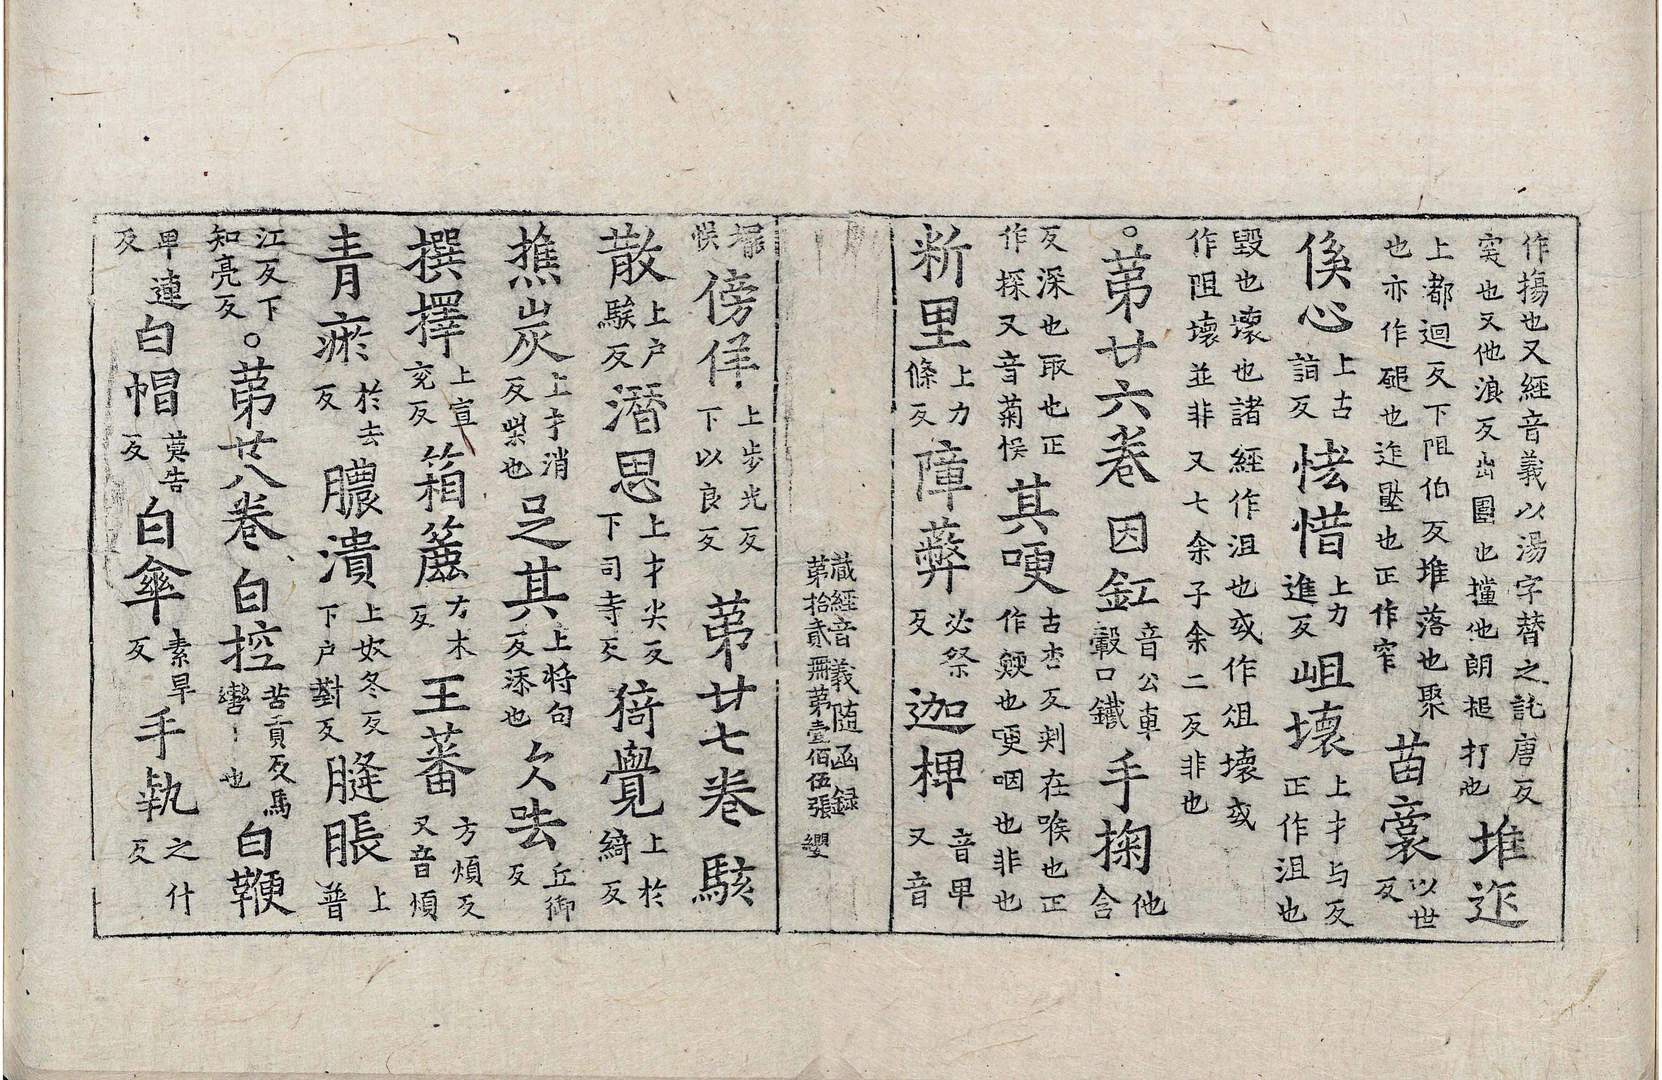 作揚也又經音義以湯字替之託唐反
突也又他浪反出圕也擋他朗搥打也堆迮
上都迴反下阻伯反堆落也聚
也亦作磓也迮壓也正作窄苗裔以世反
傒心上古詣反怯惜上力進反岨壞上才与反正作沮也
毀也壞也諸經作沮也或作俎壞或
作阻壞並非又七余子余二反非也
。苐廿六卷因釭音公車轂口鐵手掬他含
反深也取也正作探又音菊悮其哽古杏反刾在喉也正作鯁也哽咽也非也
㫁里上力條反障蔽必祭反迦椑音卑又音
藏經音義隨函録
苐拾貳冊苐壹佰伍張 纓
悮傍佯上步光反下以良反苐廿七卷駭
散上户騃反潛思上才尖反下司寺反猗覺上於綺反
㷅炭上才消反柴也足其上將句反添也欠呿丘御反
撰擇上宣兖反箱簏力木反王蕃方煩反又音煩
青瘀於去反膿潰上奴冬反下户對反膖脹上普
江反下知亮反。苐廿八卷白控苦貢反馬轡〻也白鞭
卑連反白帽莫告反白傘素旱反手執之什反